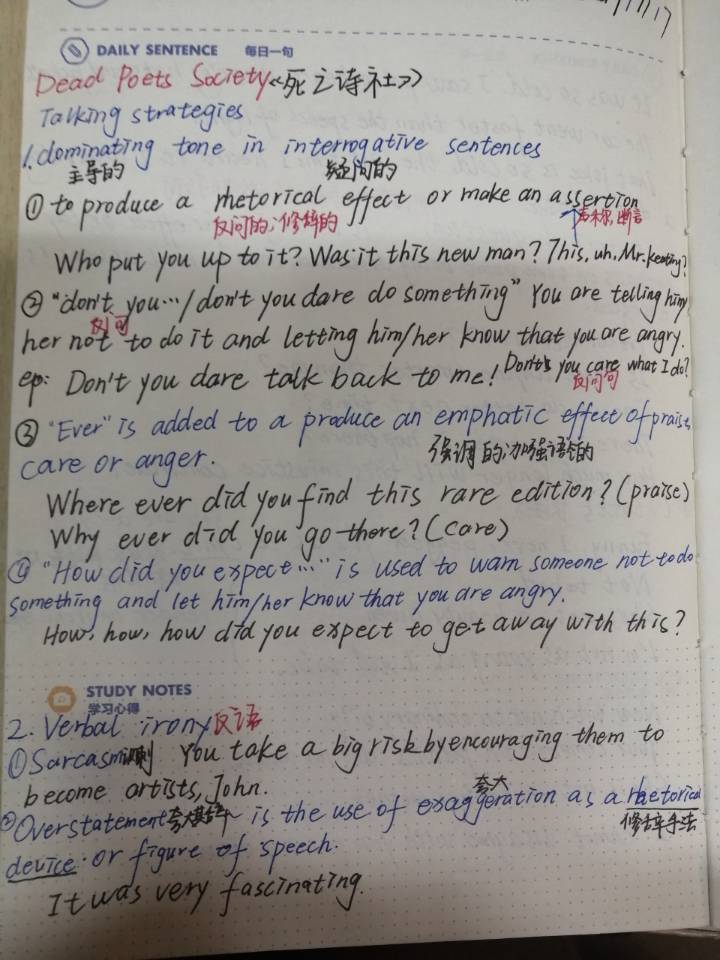 /17
DAILY SENTENCE 每日一句
Dead Poets Society《死亡诗社》
Talking strategies
1. dominating tone in interrogative sentences
主导的 疑问的
① to produce a rhetorical effect or make an assertion
反问的,修辞的 声称,断言
Who put you up to it? Was it this new man? This, uh, Mr. Keating?
② "don't you…/don't you dare do something" You are telling him/
反问
her not to do it and letting him/her know that you are angry.
ep: Don't you dare talk back to me! Don't you care what I do?
反问句
③ "Ever" is added to a produce an emphatic effect of praise,
强调的,加强语气的
care or anger.
Where ever did you find this rare edition? (praise)
Why ever did you go there? (care)
④ "How did you expect…" is used to warn someone not to do
something and let him/her know that you are angry.
How, how, how did you expect to get away with this?
STUDY NOTES
学习心得
2. Verbal irony 反语
① Sarcasm 讽刺 You take a big risk by encouraging them to
become artists, John.
夸大
② Overstatement is the use of exaggeration as a rhetorical
修辞手法
device or figure of speech.
It was very fascinating.